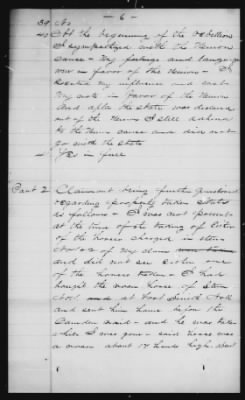 - 6 -
39 No
40 At the beginning of the rebellion
I sympathized with the Union
cause - My feelings and language
were in favor of the Union - I
exerted my influence and cast
my vote in favor of the Union
and after the state was declared
out of the Union I still adhered
to the Union cause and did not
go with the state
Yes in full
Part 2 Claimant being further questioned
regarding property taken states
as follows - I was not present
at the time of the taking of either
of the horses charged in items
No 1 & 2 of my claim
and did not see either one
of the horses taken - I had
bought the roan horse of item
No 1. at Fort Smith Ark
and sent him home before the
Camden raid - and he was taken
while I was gone - said horse was
a roan about 17 hands high.